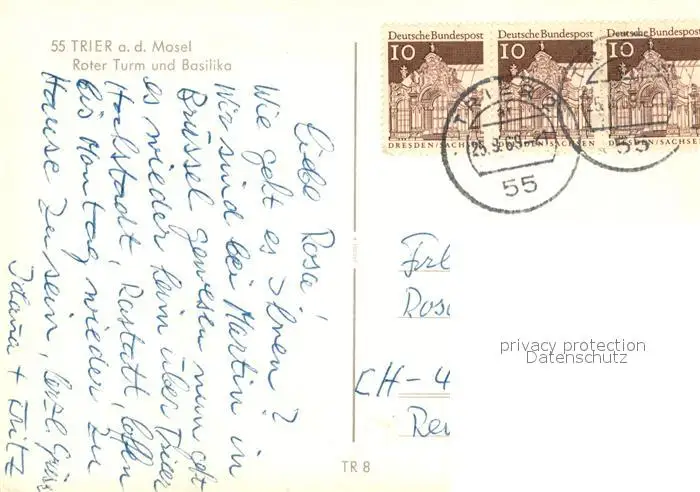 55 TRIER a. d. Mosel
Roter Turm und Basilika
Liebe Rosa!
Wie geht es Ihnen?
Wir sind bei Martin in
Brüssel gewesen nun geht
es wieder heim über Trier
Hochstadt, Rastatt, hoffen
bis Montag wieder zu
Hause zu sein, herzl. Grüsse
+ Fritz
TR 8
Deutsche Bundespost
10
DRESDEN/SACHSEN
Deutsche Bundespost
10
DRESDEN/SACHSEN
Deutsche Bundespost
10
DRESDEN/SACHSEN
TRIER
25.9.69
55
25.
55
Frl
Ros
CH-4
privacy protection
Datenschutz